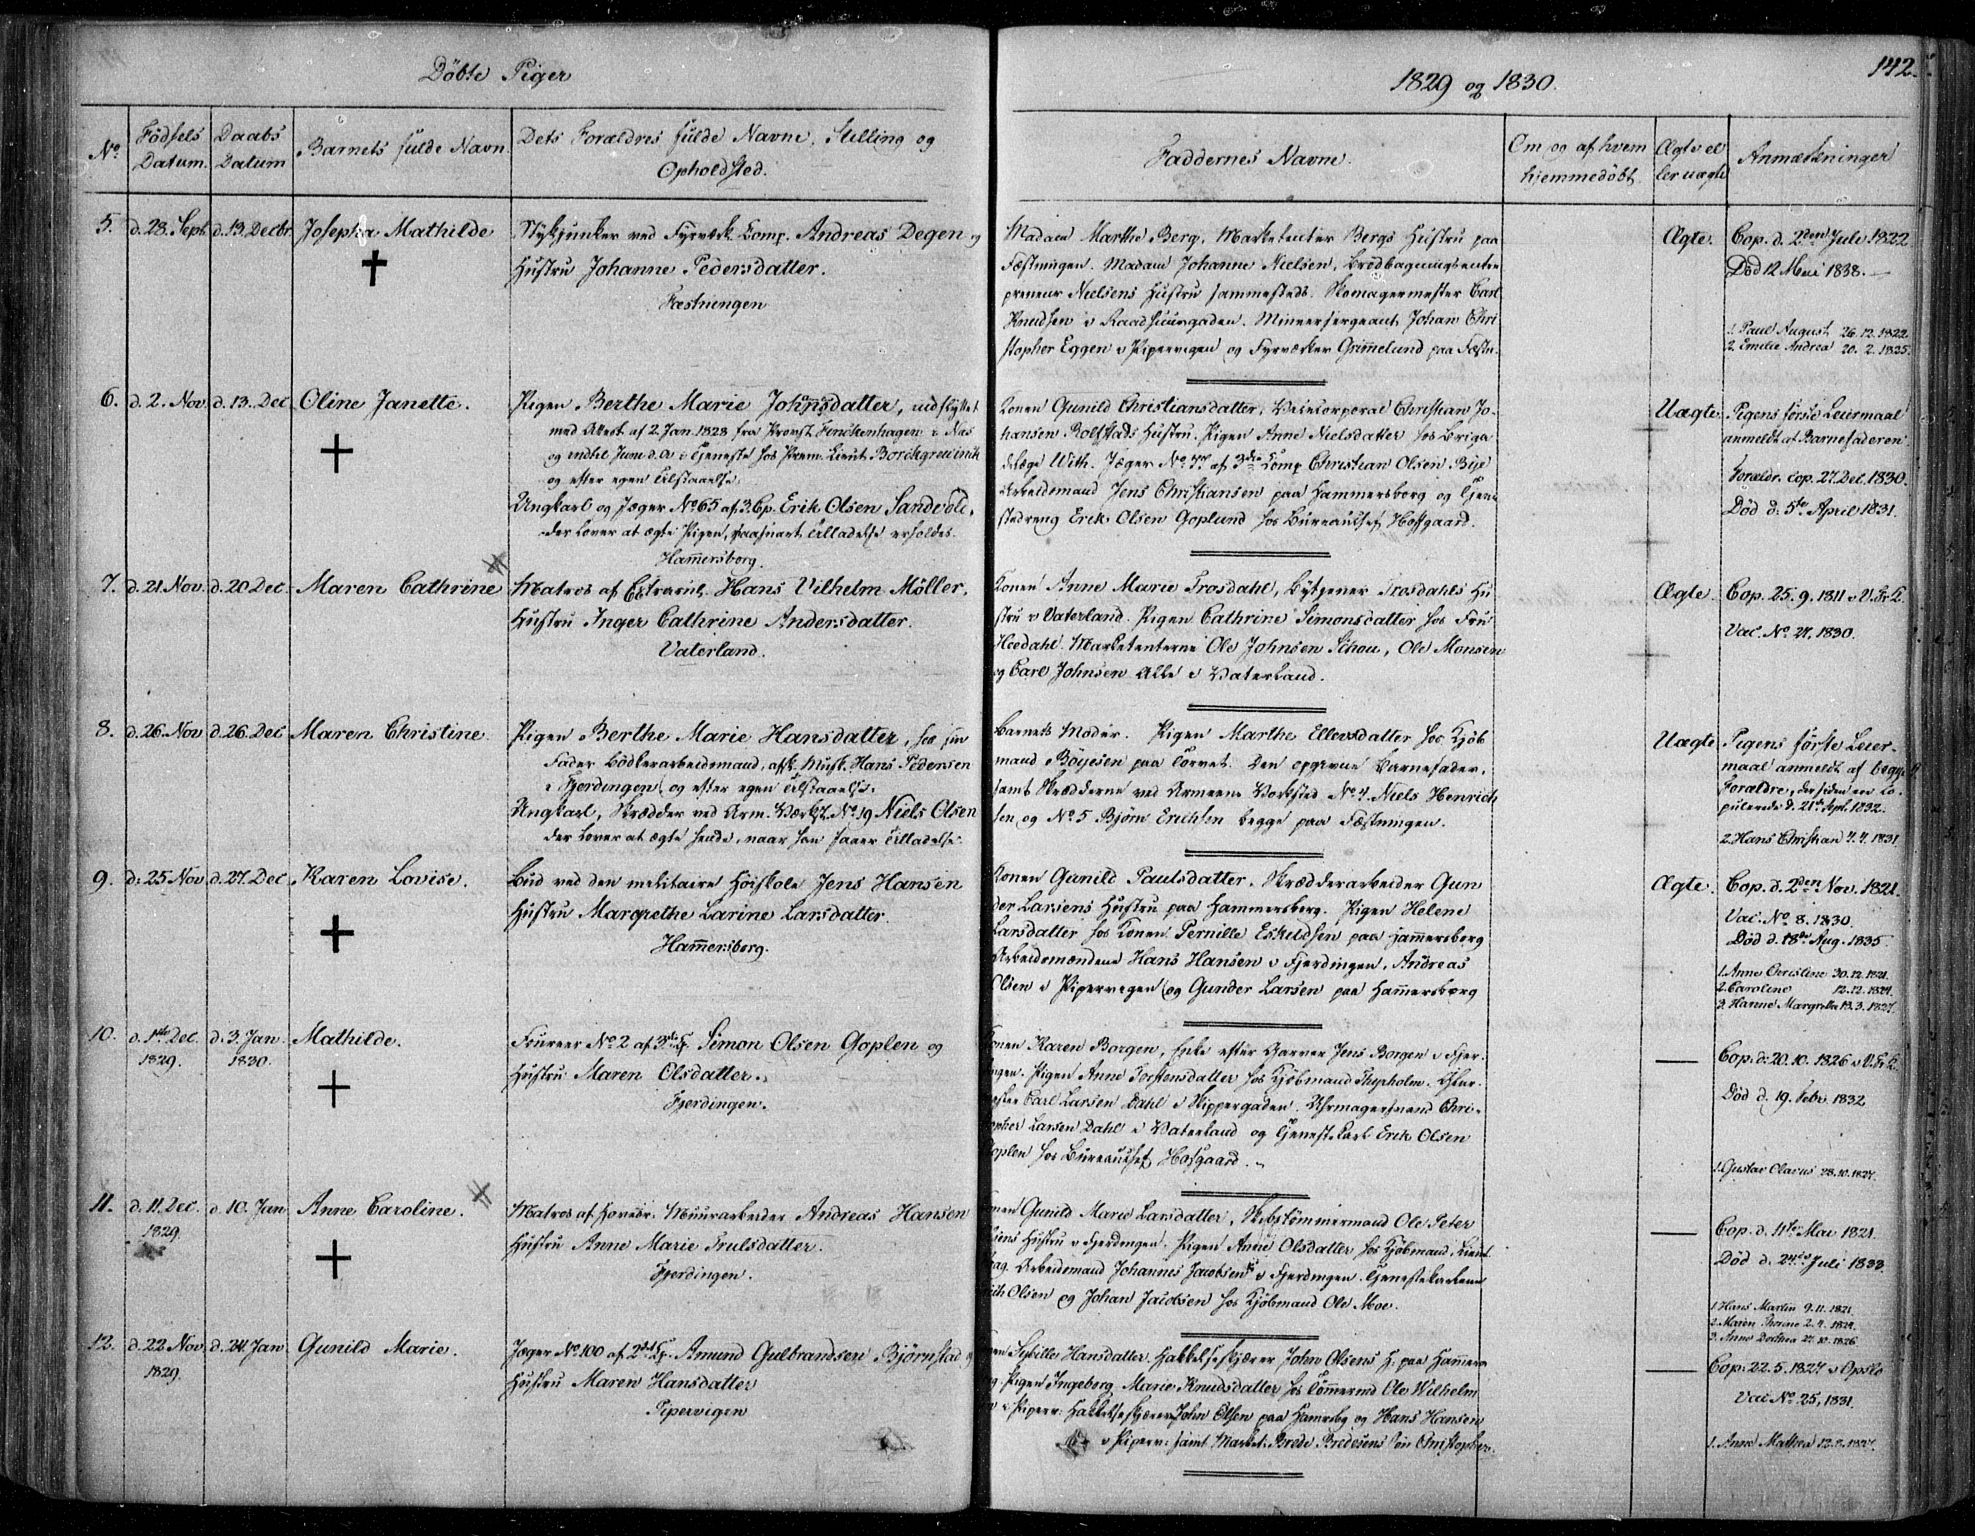 Döbte Piger
1829 og 1830.
142.
No.
Födsels Datum.
Daabs Datum
Barnets fulde Navn
Dets Forældres fulde Navne, Stilling og Opholdsted.
Faddernes Navne.
Om og af hvem hjemmedöbt.
Ægte eller uægte
Anmærkninger
5. d. 28. Sept. d. 13. Decbr. Josepha Mathilde
Stykjunker ved Fyrværk. Comp. Andreas Degen og
Hustru Johanne Pedersdatter.
Fæstningen
Madam Marthe Berg, Marketenter Bergs Hustru paa
Fæstningen. Madam Johanne Nielsen, Brödbagningsentre
preneur Nielsens Hustru sammesteds. Skomagermester Carl
Knudsen i Raadhuusgaden. Mineersergeant Johan Chri
stopher Eggen i Pipervigen og Fyrværker Grimelund paa Fæstn.
Ægte.
Cop. d. 2den Juli 1822
Död 12 Mai 1838.
1. Paul August 26.12.1822.
2. Emilie Andrea 20.2.1825.
6. d. 2. Nov d. 13. Dec Oline Janette.
Pigen Berthe Marie Johnsdatter, indflyttet
med Attest af 2. Jan. 1828 fra Provst Finckenhagen i Næs
og indtil Juni d.A. i Tjeneste hos Prem. Lieut. Borchgrevinck
og efter egen Tilstaaelse.
Ungkarl og Jæger No. 65 af 3. Cp. Erik Olsen Sandvold,
der lover at ægte Pigen, saasnart Tilladelse erholdes.
Hamersborg.
Konen Gunild Christiansdatter, Vicecorporal Christian Jo
hansen Rolfstads Hustru. Pigen Anne Nielsdatter hos Briga
delæge With. Jæger No. 77 af 3die Comp Christian Olsen Bye
Arbeidsmand Jens Christiansen paa Hammersborg og Tjene
stedreng Erik Olsen Goplund hos Bureauchef Hoffgaard.
Uægte
Pigens förste Leiermaal
anmeldt af Barnefaderen
Forældr. cop. 27. Dec. 1830.
Död d. 5te April 1831.
7. d. 21 Nov. d. 20 Dec Maren Cathrine
Matros af Extrarul. Hans Vilhelm Möller,
Hustru Inger Cathrine Andersdatter.
Vaterland.
Konen Anne Marie Trosdahl, Bytjener Trosdahls Hu
stru i Vaterland. Pigen Cathrine Simonsdatter hos Fru
Heedahl. Marketenterne Ole Johnsen Schou, Ole Monsen
og Carl Johnsen Alle i Vaterland.
Ægte.
Cop. 25. 9. 1811 i V.Fr.K.
Vac. No. 27, 1830.
8. d. 26. Nov d. 26. Dec Maren Christine.
Pigen Berthe Marie Hansdatter, hos sin
Fader Bödkerarbeidsmand, afsk. Musk. Hans Pedersen
i Fjerdingen, og efter egen Tilstaaelse.
Ungkarl, Skrædder ved Arm. Værkst. No. 19 Niels Olsen
der lover at ægte hende, naar han faaer Tilladelse.
Barnets Moder. Pigen Marthe Ellevsdatter hos Kjöb
mand Böyesen paa Torvet. Den opgivne Barnefader,
samt Skrædderne ved Armeens Værksted No. 4 Niels Henrich
sen og No. 5 Björn Erichsen begge paa Fæstningen.
Uægte
Pigens förste Leier-
maal anmeldt af begge
Foraldre, der siden ere co-
pulerede d. 21de Sept. 1832.
2. Hans Christian 4.4.1831
9. d. 25. Nov. d. 27. Dec Karen Lovise.
Bud ved den militaire Höiskole Jens Hansen
Hustru Margrethe Larine Larsdatter.
Hammersborg.
Konen Gunild Paulsdatter, Skrædderarbeider Gun
der Larsens Hustru paa Hammersberg. Pigen Helene
Larsdatter hos Konen Pernille Eskildsen paa Hammersborg
Arbeidsmændene Hans Hansen i Fjerdingen, Andreas
Olsen i Pipervigen og Gunder Larsen paa Hammersborg
Ægte.
Cop. d. 2den Nov. 1821.
Vac. No 8. 1830.
Död d. 18de Aug. 1835
1. Anne Christine 30.12.1821.
2. Caroline 12.12.1824.
3. Hanne Margrethe 13.3.1827.
10. d. 1ste Dec. 1829. d. 3. Jan 1830. Mathilde.
Foureer No. 2 af 3die Cp. Simon Olsen Goplen og
Hustru Maren Olsdatter.
Fjerdingen.
Konen Karen Borgen, Enke efter Garver Jens Borgen i Fjer-
dingen. Pigen Anne Torstensdatter hos Kjöbmand Thyrholm.
Carl Larsen Dahl i Skippergaden. Uhrmagersvend Chri-
stopher Larsen Dahl i Vaterland og Tjenestekarl Erik Olsen
Goplen hos Bureauchef Hofgaard.
Cop. d. 20.10.1826 i V.Fr.K.
Död d. 19. Febr. 1832
1. Gustav Olavus 28.10.1827.
11. d. 11. Dec. 1829. d. 10. Jan Anne Caroline.
Matros af Hovedr. Muurarbeider Andreas Hansen
Hustru Anne Marie Trulsdatter.
Fjerdingen.
Konen Gunild Marie Larsdatter, Skibstömmermand Ole Peter
Hustru i Fjerdingen. Pigen Anne Olsdatter hos Kjöbmand, Lieut.
Arbeidsmand Johannes Jacobsen i Fjerdingen. Tjenestekarlene
Olsen og Johan Jacobsen hos Kjöbmand Ole Moe.
Cop. d. 11te Mai 1821.
Död d. 24de Juli 1833.
1. Hans Martin 9.11.1821.
2. Maren Thorine 2.4.1824.
3. Anne Dorthea 27.10.1826
12. d. 22 Nov 1829. d. 24 Jan Gunild Marie.
Jæger No. 100 af 2det Cp. Amund Gulbrandsen Björnstad og
Hustru Maren Hansdatter
Pipervigen
Konen Sibille Hansdatter, Hakkelseskjærer John Olsens H. paa Hammers
og Pigen Ingeborg Marie Knudsdatter hos Tömermd Ole Wilhelm
i Piperv: Hakkelseskjærer John Olsen paa Hamersbg og Hans Hansen
i Piperv: samt Market: Brede Bredesens Sön Christopher.
Cop. 22.5.1827 i Opslo
Vac No. 25, 1831.
1. Anne Mathea